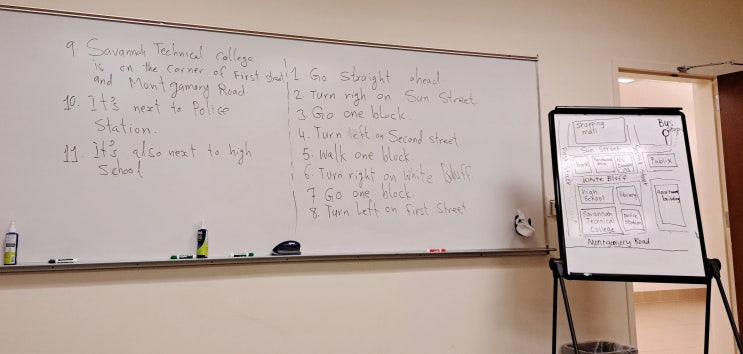 1 Go straight ahead
2 Turn righ on Sun Street
3 Go one block.
4. Turn left on Second street
5. Walk one block.
6. Turn right on White Bluff
7 Go one block.
8. Turn Left on First Street
9 Savannah Technical college
is on the corner of First street
and Montgamory Road.
10. It's next to Police
Station.
11. It's also next to high
School
Shopping
mall
Sun Street
Publix
White Bluff
high
School
library
Apartment
building
Savannah
Technical
College
Police
Station
Montgomery Road